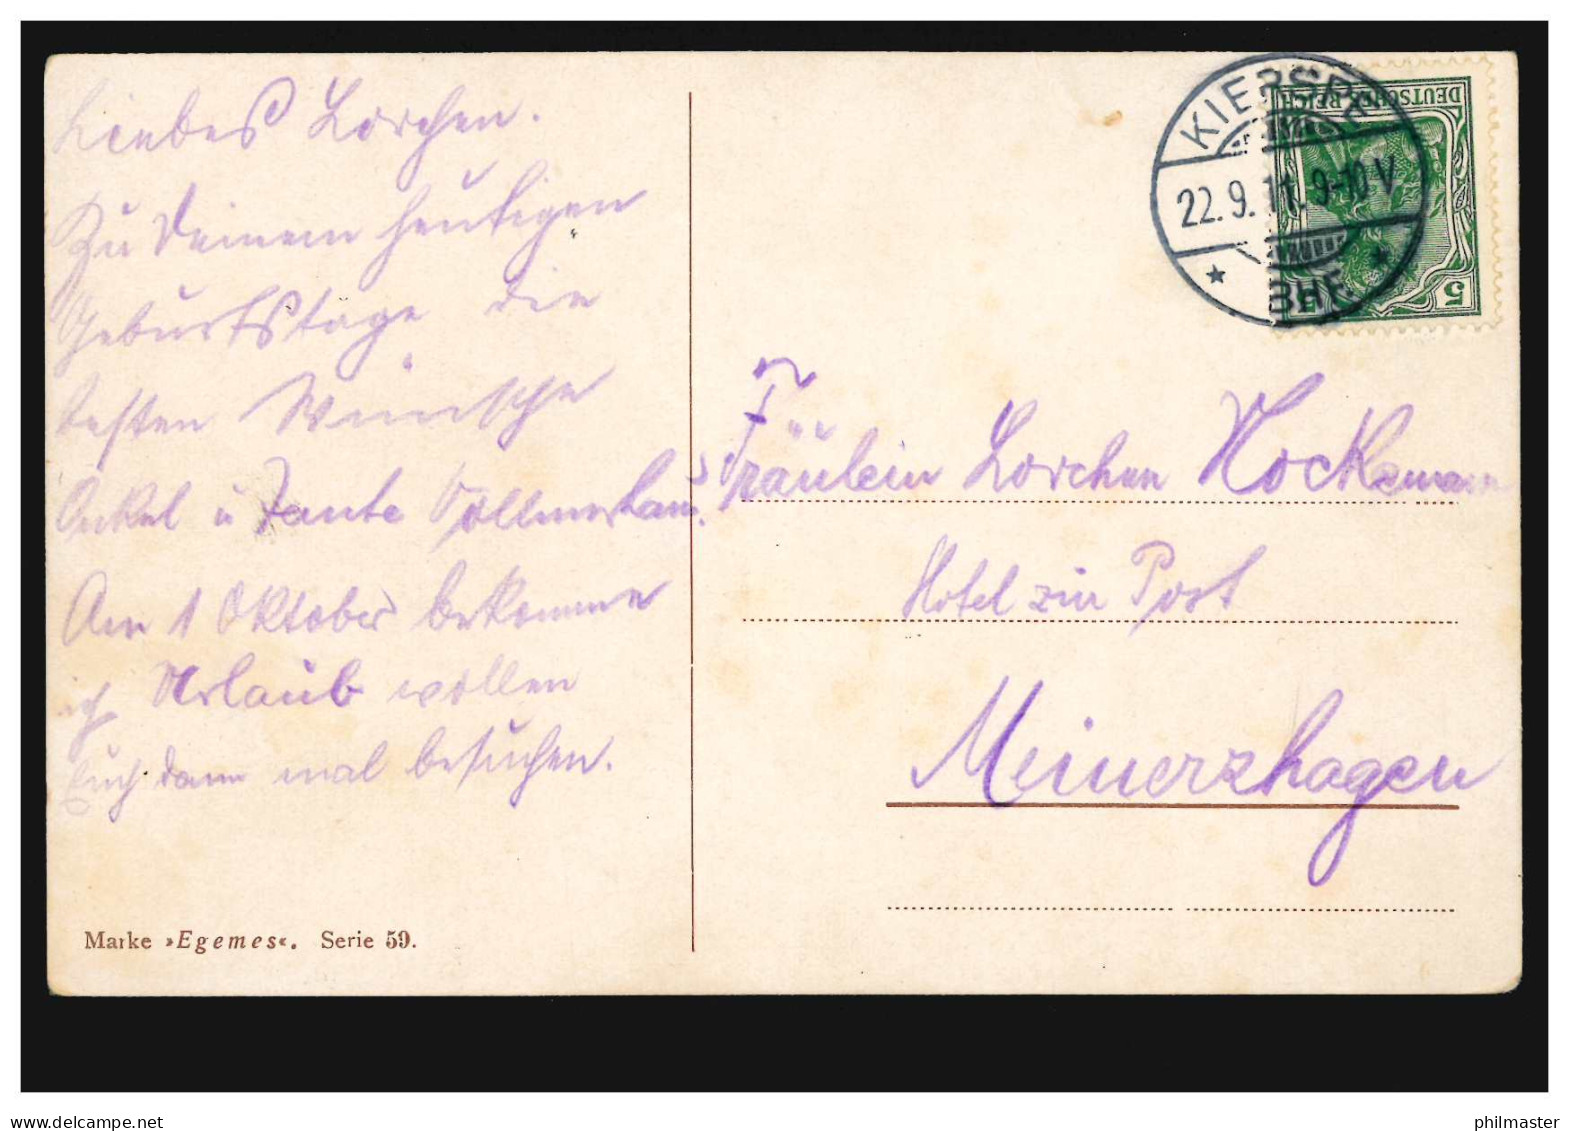 Liebes Lorchen.
Zu Deinem heutigen
Geburtstage die
besten Wünsche
Onkel u Tante Vollmerhaus.
Am 1 Oktober bekomme
ich Urlaub wollen
Euch dann mal besuchen.
Marke »Egemes«. Serie 59.
KIERSPE
22.9.11. 9-10 V
* BHF. *
DEUTSCHES REICH
5 5
Fräulein Lorchen Hockemann
Hotel zur Post
Meinerzhagen
www.delcampe.net
philmaster